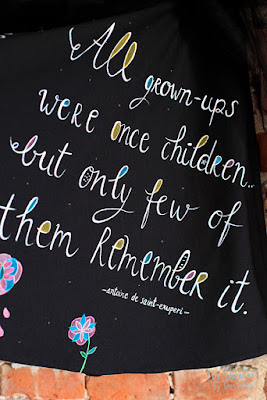 All
grown-ups
were once children...
but only few of
them remember it.
-antoine de saint-exuperi-